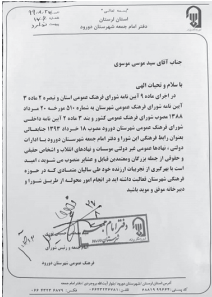 بسمه تعالی
استان لرستان
دفتر امام جمعه شهرستان دورود
جناب آقای سید موسی موسوی
با سلام و تحیات الهی
در اجرای ماده ۹ آیین نامه شورای فرهنگ عمومی استان و تبصره ۲ ماده ۳
آیین نامه شورای فرهنگ عمومی شهرستان به شماره ۵۱۰ مورخه ۲۰ مرداد
۱۳۸۸ مصوب شورای فرهنگ عمومی کشور و بند ۳ ماده ۲ آیین نامه داخلی
شورای فرهنگ عمومی شهرستان دورود مصوب ۱۸ خرداد ۱۳۹۳ جنابعالی
بعنوان رابط فرهنگی این شورا و دفتر امام جمعه شهرستان دورود با ادارات
دولتی ، نهادهای عمومی غیر دولتی موسسات و نهادهای انقلاب و اشخاص حقیقی
و حقوقی از جمله بزرگان ومعتمدین قبایل و عشایر منصوب می شوید ، امید
است با بهره گیری از تجربیات ارزنده خود طی سالیان متمادی که در حوزه
فرهنگ شهرستان فعالیت داشته اید در انجام امور محوله از طریق شورا و
دبیرخانه موفق و موید باشید
دفتر امام جمعه
فرهنگ عمومی شهرستان دورود